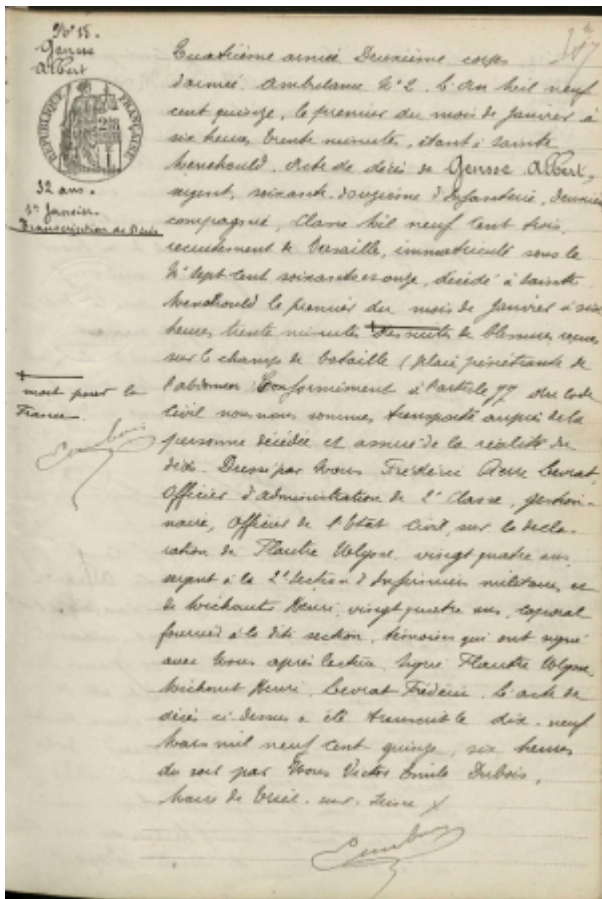 N° 18.
Gensse
Albert
RÉPUBLIQUE FRANÇAISE
32 ans.
1er Janvier.
Transcription de Décès
mort pour la
France.
Quatrième armée Deuxième corps
d'armée. Ambulance N° 2. L'an mil neuf
cent quinze, le premier du mois de Janvier à
six heures trente minutes, étant à Sainte
Menehould. Acte de décès de Gensse Albert,
sergent, soixante-douzième d'Infanterie, deuxième
compagnie, Classe mil neuf cent trois,
recrutement de Versaille, immatriculé sous le
N° sept cent soixante et onze, décédé à Sainte
Menehould le premier du mois de Janvier à six
heures trente minutes des suites de blessures reçues
sur le champ de bataille (plaie pénétrante de
l'abdomen Conformément à l'article 77 du code
Civil nous nous sommes transporté auprès de la
personne décédée et assuré de la réalité du
décès. Dressé par Nous Frédéric Levrat,
Officier d'administration de 2e Classe, gestion-
naire, Officier de l'Etat Civil, sur la décla-
ration de Flautre Ulysse, vingt quatre ans,
sergent à la 2e Section d'Infirmiers militaires, et
de Henri, vingt quatre ans, caporal
fourrier à la dite section, témoins qui ont signé
avec Nous après lecture. Signé Flautre Ulysse,
Henri, Levrat Frédéric. L'acte de
décès ci-dessus a été transcrit le dix-neuf
Mars mil neuf cent quinze, six heures
du soir par Nous Victor Emile Dubois,
Maire de Triel-sur-Seine